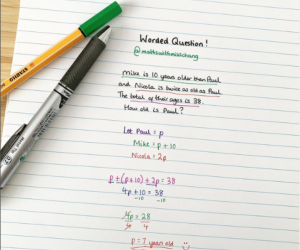 Worded Question!
@mathswithmisschang
Mike is 10 years older than Paul
and Nicola is twice as old as Paul.
The total of their ages is 38.
How old is Paul?
Let Paul = p
Mike = p + 10
Nicola = 2p
p + (p+10) + 2p = 38
4p + 10 = 38
-10 -10
4p = 28
4
p = 7 years old
STABILO